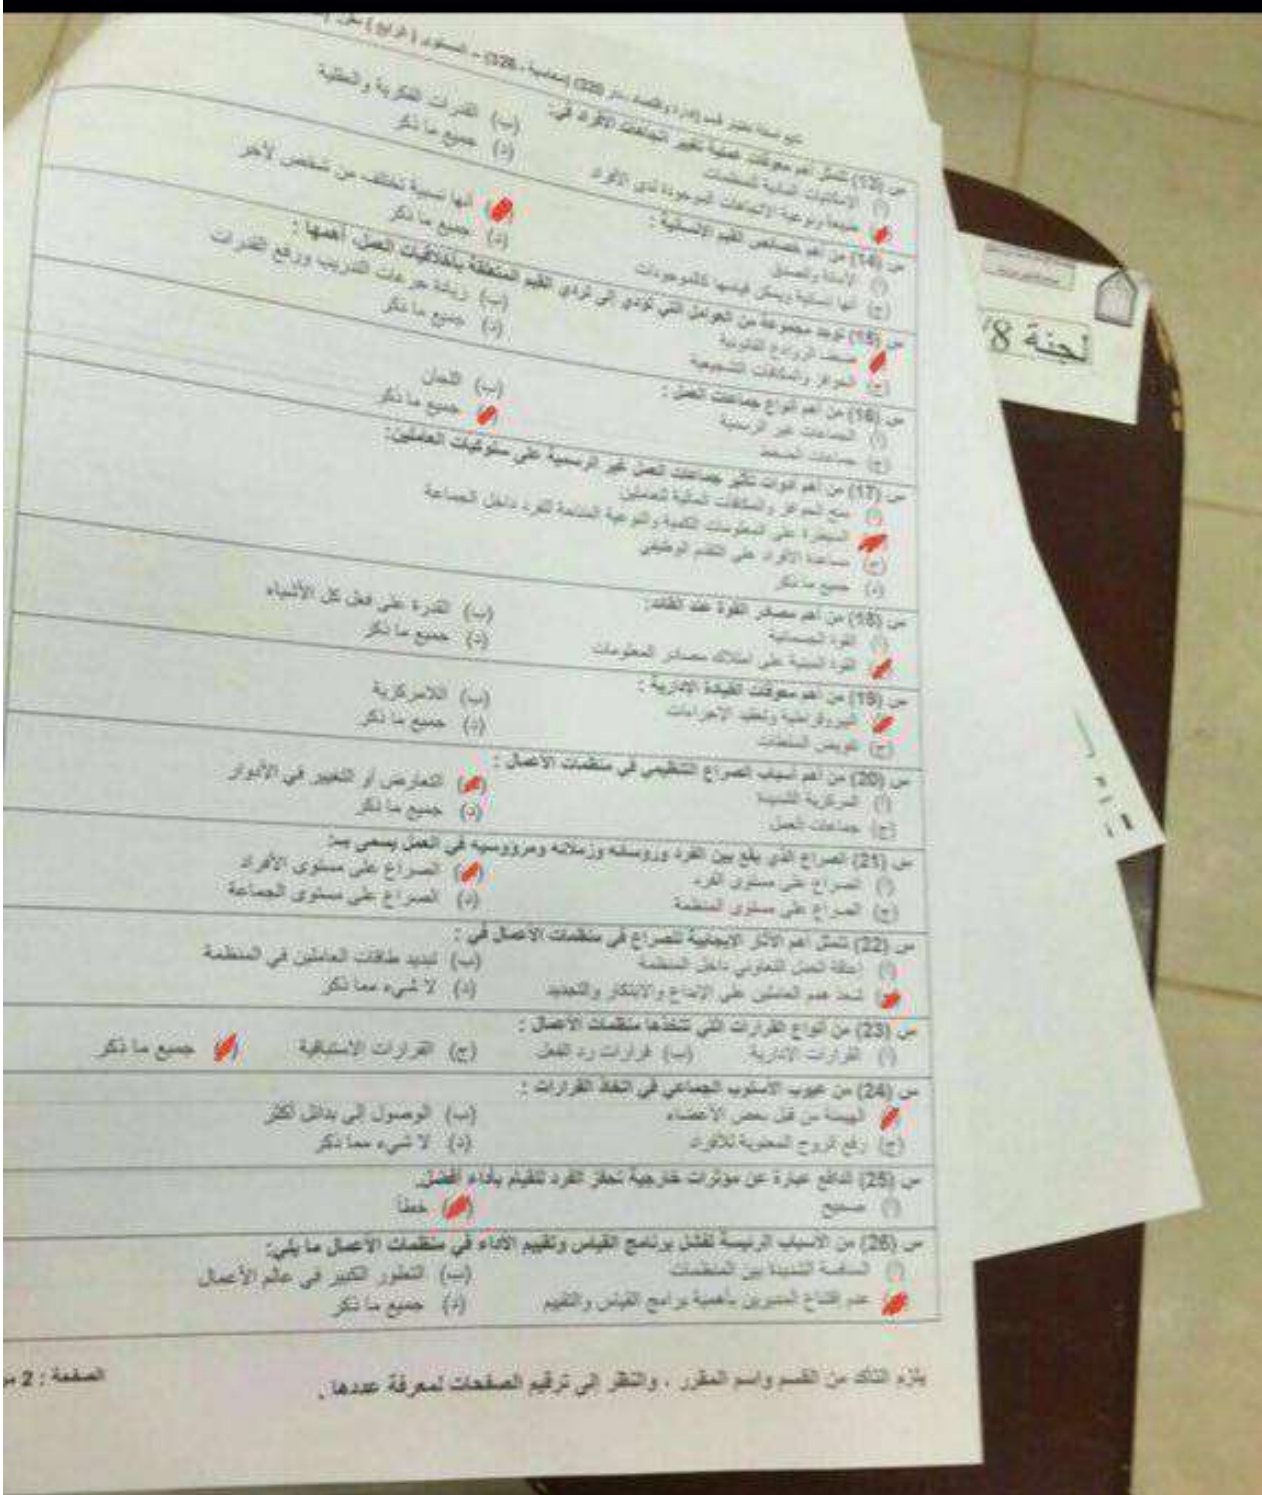 تابع أسئلة اختبار قسم (إدارة واقتصاد
س (13) تتمثل أهم معوقات عملية تغيير اتجاهات الأفراد في:
(أ) الإمكانيات المالية للمنظمات (ب) القدرات الفكرية والعقلية
طبيعة ونوعية الاتجاهات الموجودة لدى الأفراد (د) جميع ما ذكر
س (14) من أهم خصائص القيم الإنسانية :
(أ) الأمانة والصدق أنها نسبية تختلف من شخص لآخر
(ج) أنها إنسانية ويمكن قياسها كالموجودات (د) جميع ما ذكر
س (15) توجد مجموعة من العوامل التي تؤدي إلى تردي القيم المتعلقة بأخلاقيات العمل، أهمها :
ضعف الروادع القانونية (ب) زيادة جرعات التدريب ورفع القدرات
(ج) الحوافز والمكافآت التشجيعية (د) جميع ما ذكر
س (16) من أهم أنواع جماعات العمل :
(أ) الجماعات غير الرسمية (ب) اللجان
(ج) جماعات الضغط جميع ما ذكر
س (17) من أهم أدوات تأثير جماعات العمل غير الرسمية على سلوكيات العاملين:
(أ) منح الحوافز والمكافآت المالية للعاملين
السيطرة على المعلومات الكمية والنوعية المتاحة للفرد داخل الجماعة
(ج) مساعدة الأفراد على التقدم الوظيفي
(د) جميع ما ذكر
س (18) من أهم مصادر القوة عند القائد:
(أ) القوة الجسمانية (ب) القدرة على فعل كل الأشياء
القوة المبنية على امتلاك مصادر المعلومات (د) جميع ما ذكر
س (19) من أهم معوقات القيادة الإدارية :
البيروقراطية وتعقيد الإجراءات (ب) اللامركزية
(ج) تفويض السلطات (د) جميع ما ذكر
س (20) من أهم أسباب الصراع التنظيمي في منظمات الأعمال :
(أ) المركزية الشديدة التعارض أو التغيير في الأدوار
(ج) جماعات العمل (د) جميع ما ذكر
س (21) الصراع الذي يقع بين الفرد ورؤسائه وزملائه ومرؤوسيه في العمل يسمى بـ:
(أ) الصراع على مستوى الفرد الصراع على مستوى الأفراد
(ج) الصراع على مستوى المنظمة (د) الصراع على مستوى الجماعة
س (22) تتمثل أهم الآثار الإيجابية للصراع في منظمات الأعمال في :
(أ) إعاقة العمل التعاوني داخل المنظمة (ب) تبديد طاقات العاملين في المنظمة
شحذ همم العاملين على الإبداع والابتكار والتجديد (د) لا شيء مما ذكر
س (23) من أنواع القرارات التي تتخذها منظمات الأعمال :
(أ) القرارات الإدارية (ب) قرارات رد الفعل (ج) القرارات الاستباقية جميع ما ذكر
س (24) من عيوب الأسلوب الجماعي في اتخاذ القرارات :
الهيمنة من قبل بعض الأعضاء (ب) الوصول إلى بدائل أكثر
(ج) رفع الروح المعنوية للأفراد (د) لا شيء مما ذكر
س (25) الدافع عبارة عن مؤثرات خارجية تحفز الفرد للقيام بأداء أفضل.
(أ) صحيح خطأ
س (26) من الأسباب الرئيسة لفشل برنامج القياس وتقييم الأداء في منظمات الأعمال ما يلي:
(أ) المنافسة الشديدة بين المنظمات (ب) التطور الكبير في عالم الأعمال
عدم اقتناع المديرين بأهمية برامج القياس والتقييم (د) جميع ما ذكر
يلزم التأكد من القسم واسم المقرر ، والنظر إلى ترقيم الصفحات لمعرفة عددها .
الصفحة : 2
لجنة 8/